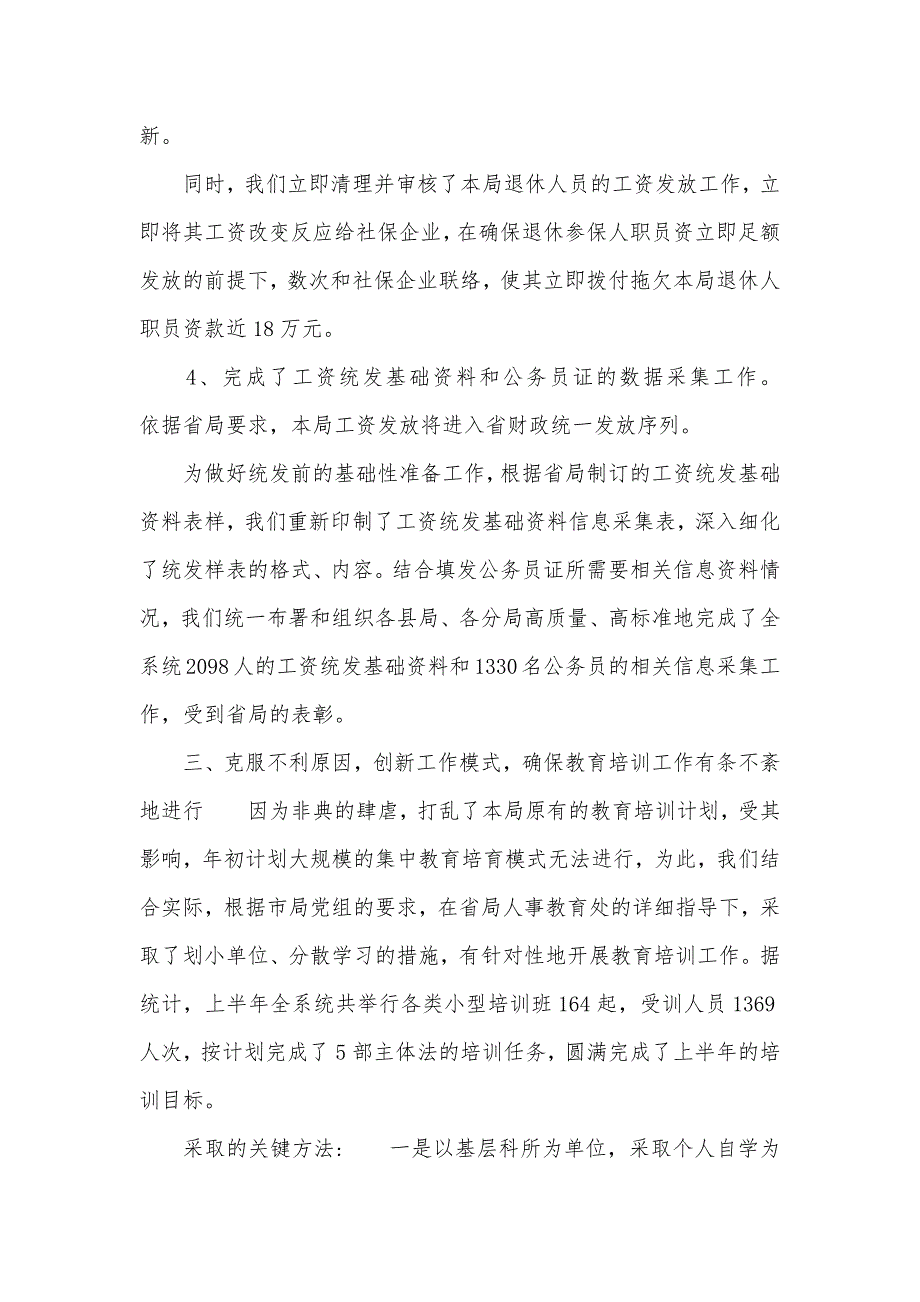 新。
同时，我们立即清理并审核了本局退休人员的工资发放工作，立
即将其工资改变反应给社保企业，在确保退休参保人职员资立即足额
发放的前提下，数次和社保企业联络，使其立即拨付拖欠本局退休人
职员资款近 18 万元。
4、完成了工资统发基础资料和公务员证的数据采集工作。
依据省局要求，本局工资发放将进入省财政统一发放序列。
为做好统发前的基础性准备工作，根据省局制订的工资统发基础
资料表样，我们重新印制了工资统发基础资料信息采集表，深入细化
了统发样表的格式、内容。结合填发公务员证所需要相关信息资料情
况，我们统一布署和组织各县局、各分局高质量、高标准地完成了全
系统 2098 人的工资统发基础资料和 1330 名公务员的相关信息采集工
作，受到省局的表彰。
三、克服不利原因，创新工作模式，确保教育培训工作有条不紊
地进行　　因为非典的肆虐，打乱了本局原有的教育培训计划，受其
影响，年初计划大规模的集中教育培育模式无法进行，为此，我们结
合实际，根据市局党组的要求，在省局人事教育处的详细指导下，采
取了划小单位、分散学习的措施，有针对性地开展教育培训工作。据
统计，上半年全系统共举行各类小型培训班 164 起，受训人员 1369
人次，按计划完成了 5 部主体法的培训任务，圆满完成了上半年的培
训目标。
采取的关键方法:　　一是以基层科所为单位，采取个人自学为